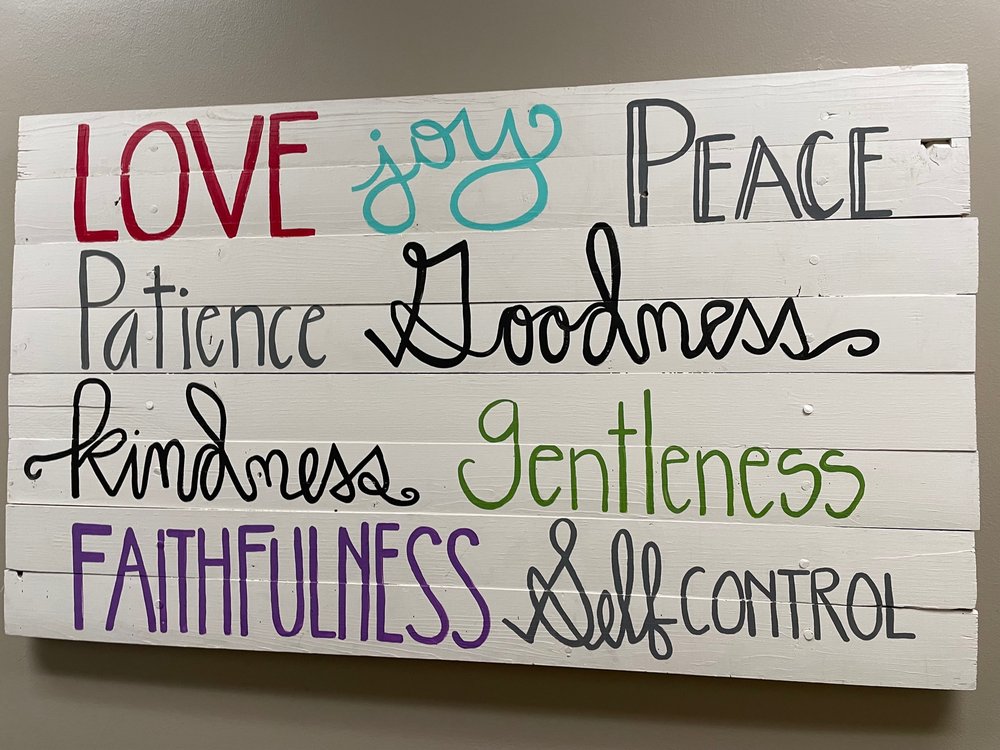 LOVE joy PEACE
Patience Goodness
kindness gentleness
FAITHFULNESS Self CONTROL